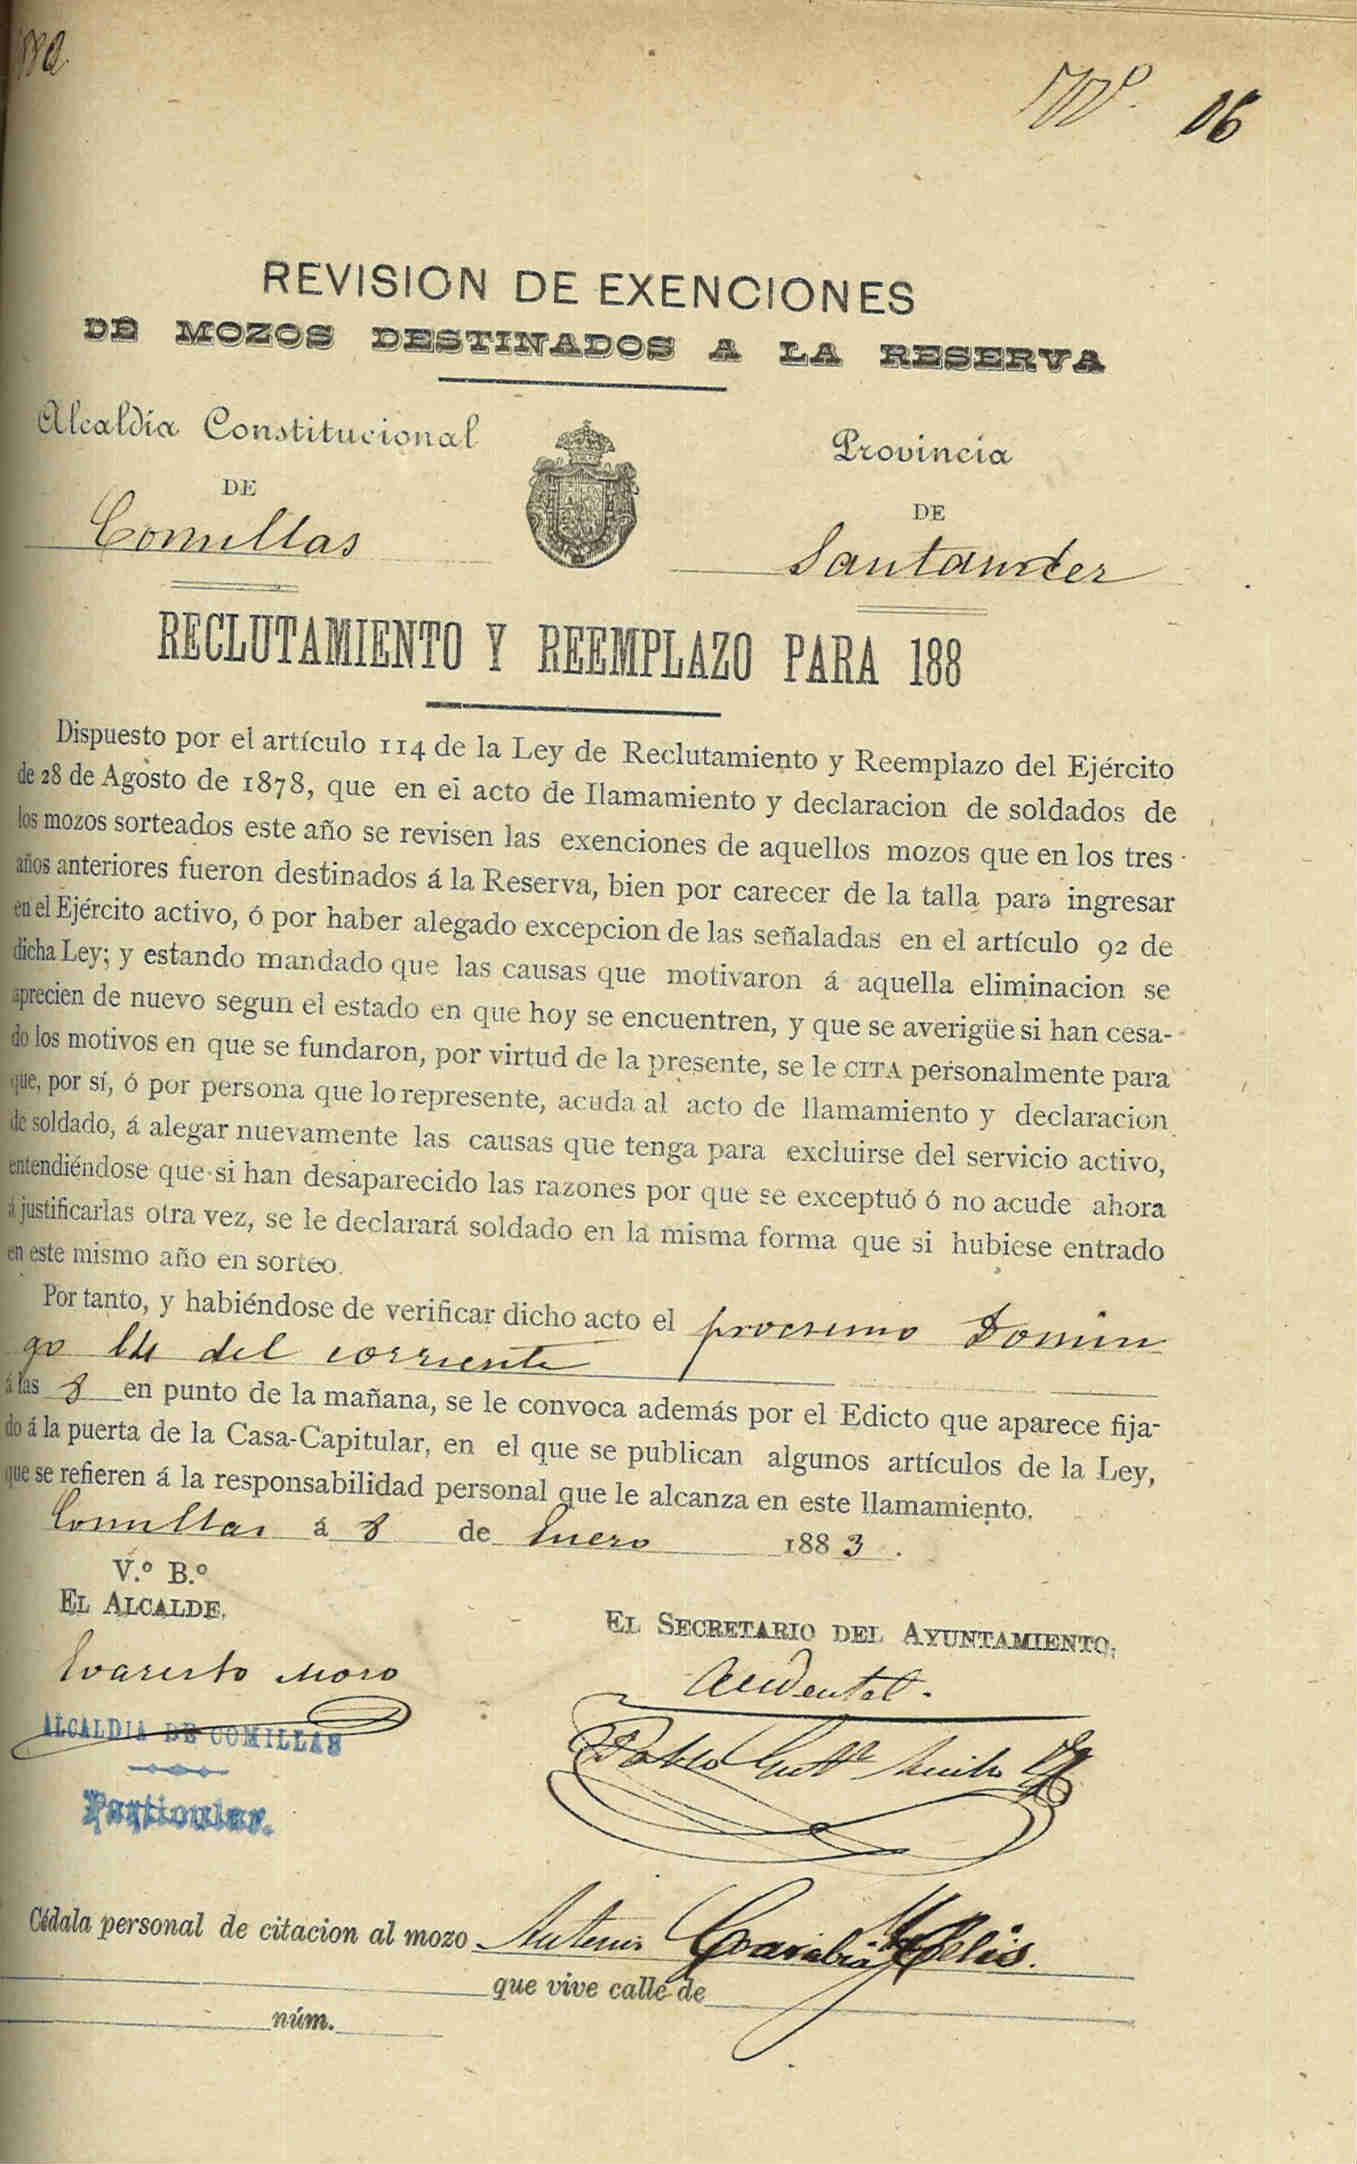 06
REVISION DE EXENCIONES
DE MOZOS DESTINADOS A LA RESERVA
Alcaldía Constitucional
DE
Comillas
Provincia
DE
Santander
RECLUTAMIENTO Y REEMPLAZO PARA 188
Dispuesto por el artículo 114 de la Ley de Reclutamiento y Reemplazo del Ejército
de 28 de Agosto de 1878, que en el acto de llamamiento y declaracion de soldados de
los mozos sorteados este año se revisen las exenciones de aquellos mozos que en los tres
años anteriores fueron destinados á la Reserva, bien por carecer de la talla para ingresar
en el Ejército activo, ó por haber alegado excepcion de las señaladas en el artículo 92 de
dicha Ley; y estando mandado que las causas que motivaron á aquella eliminacion se
aprecien de nuevo segun el estado en que hoy se encuentren, y que se averigüe si han cesa-
do los motivos en que se fundaron, por virtud de la presente, se le CITA personalmente para
que, por sí, ó por persona que lo represente, acuda al acto de llamamiento y declaracion
de soldado, á alegar nuevamente las causas que tenga para excluirse del servicio activo,
entendiéndose que si han desaparecido las razones por que se exceptuó ó no acude ahora
á justificarlas otra vez, se le declarará soldado en la misma forma que si hubiese entrado
en este mismo año en sorteo.
Por tanto, y habiéndose de verificar dicho acto el procsimo Domin
go 14 del corriente
á las 8 en punto de la mañana, se le convoca además por el Edicto que aparece fija-
do á la puerta de la Casa-Capitular, en el que se publican algunos artículos de la Ley,
que se refieren á la responsabilidad personal que le alcanza en este llamamiento.
Comillas á 8 de Enero 1883.
V.º B.º
EL ALCALDE,
EL SECRETARIO DEL AYUNTAMIENTO,
Evaristo Moro
Accidental.
ALCALDIA DE COMILLAS
Pablo Gutt
Particular.
Cédala personal de citacion al mozo Antonio Celis.
que vive calle de
núm.